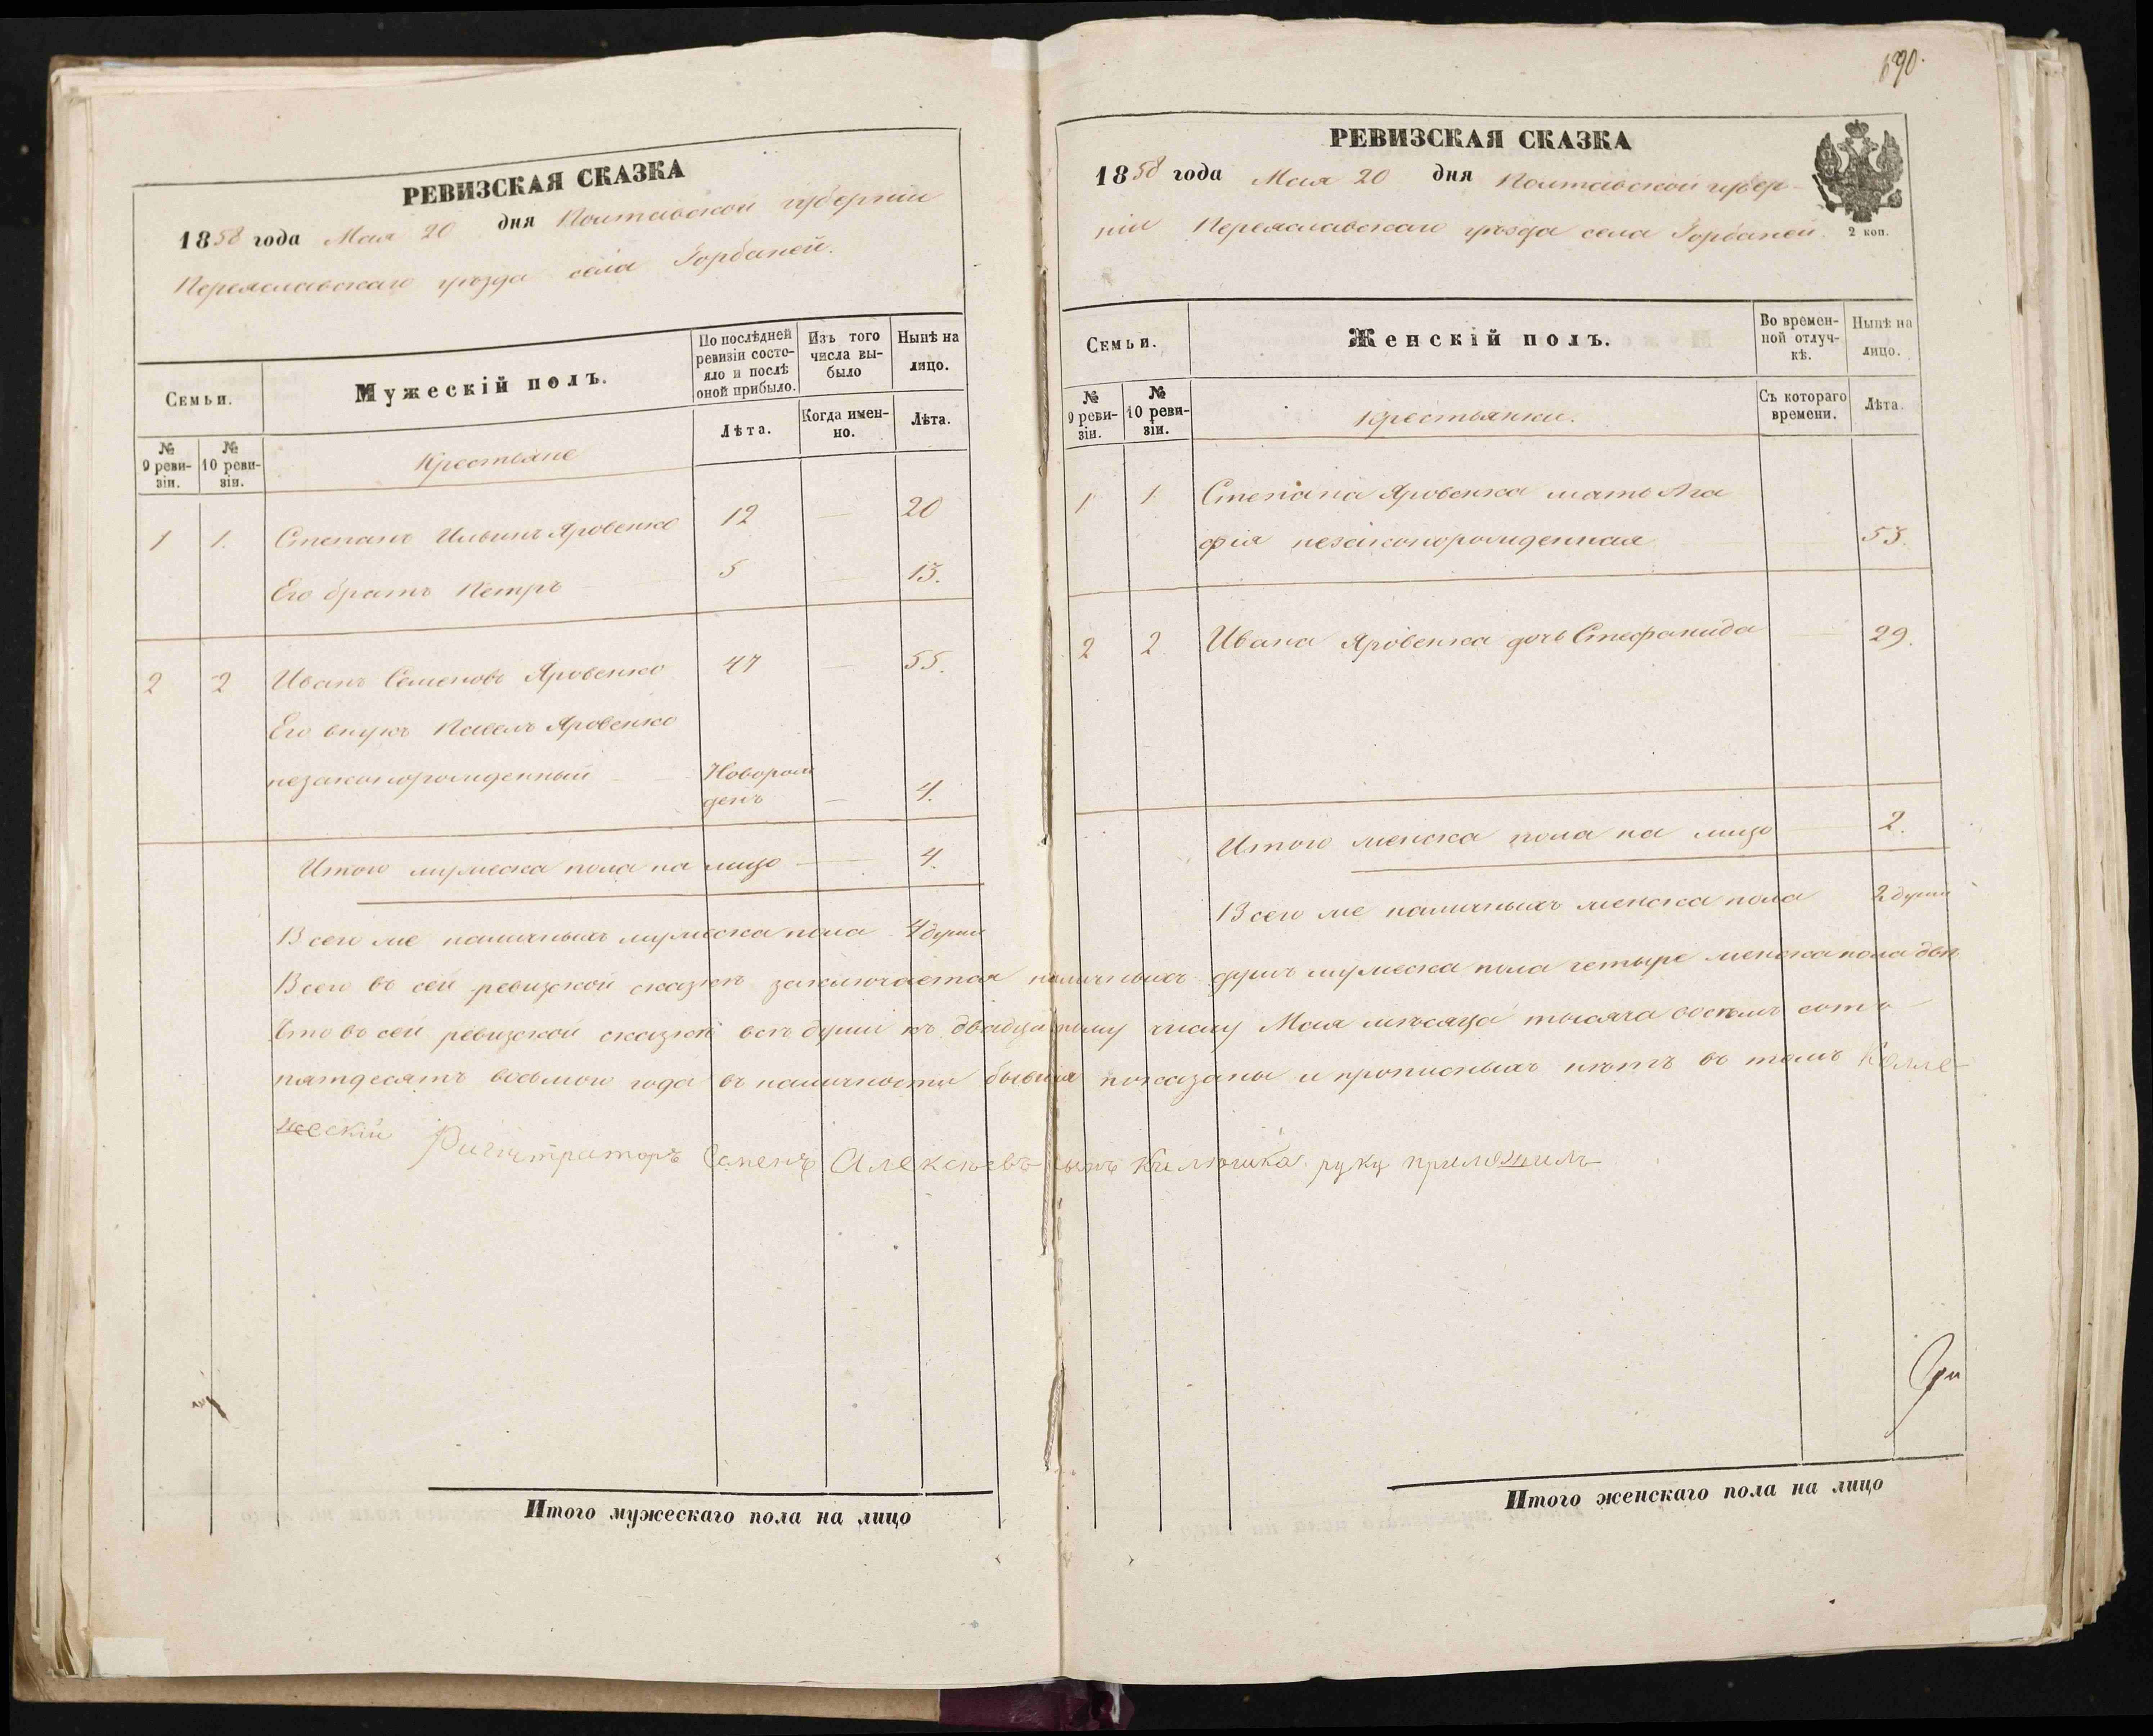 690.
РЕВИЗСКАЯ СКАЗКА
1858 года Мая 20 дня Полтавской губерніи
Переяславскаго уѣзда села Горбаней.
Семьи.
Мужескій полъ.
По послѣдней ревизіи состояло и послѣ оной прибыло.
Изъ того числа выбыло
Нынѣ на лицо.
№ 9 ревизіи.
№ 10 ревизіи.
Крестьяне
Лѣта.
Когда именно.
Лѣта.
1 1. Степанъ Ильинъ Яровенко 12 — 20
Его братъ Петръ 5 — 13.
2 2 Иванъ Семеновъ Яровенко 47 — 55.
Его внукъ Павелъ Яровенко
незаконорожденный Новорож
денъ — 4.
Итого мужеска пола на лицо 4.
Всего же наличныхъ мужеска пола 4 души
РЕВИЗСКАЯ СКАЗКА
1858 года Мая 20 дня Полтавской губер-
ніи Переяславскаго уѣзда села Горбаней.
2 коп.
Семьи.
Женскій полъ.
Во временной отлучкѣ.
Нынѣ на лицо.
№ 9 ревизіи.
№ 10 ревизіи.
Крестьянки.
Съ котораго времени.
Лѣта.
1 1 Степана Яровенка мать Ага
фія незаконорожденная 53.
2 2 Ивана Яровенка дочь Стефанида 29.
Итого женска пола на лицо 2.
Всего же наличныхъ женска пола 2 души
Всего въ сей ревизской сказкѣ заключается наличныхъ душъ мужеска пола четыре женска пола двѣ
Что въ сей ревизской сказкѣ всѣ души къ двадцатому числу Мая мѣсяца тысяча восемь сотъ
пятдесятъ восьмого года въ наличности бывшія показаны и прописныхъ нѣтъ въ томъ Колле-
жескій Ригистраторъ Семенъ Алексѣевъ сынъ руку приложилъ
Итого мужескаго пола на лицо
Итого женскаго пола на лицо